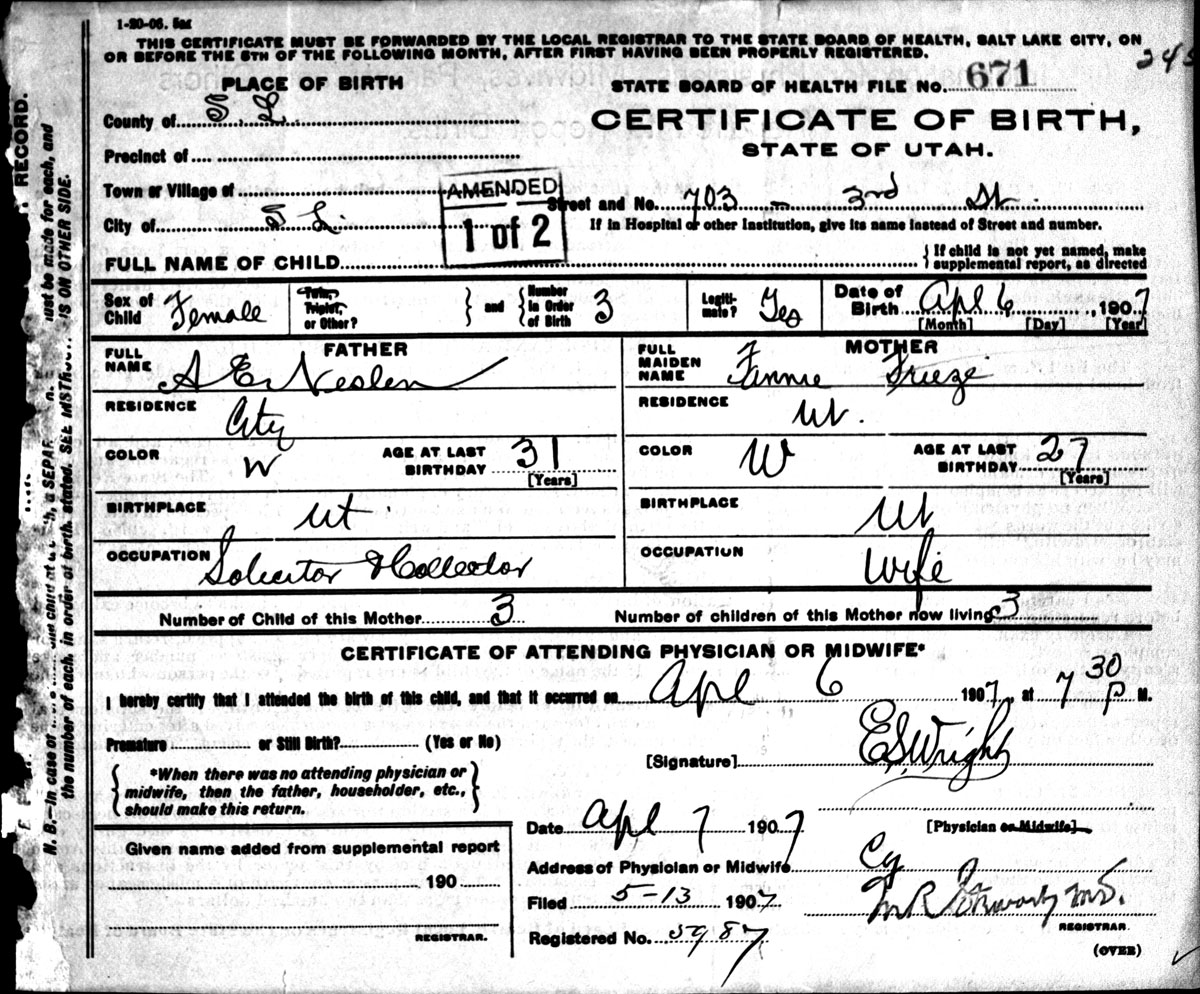 1-20-06. 5m
THIS CERTIFICATE MUST BE FORWARDED BY THE LOCAL REGISTRAR TO THE STATE BOARD OF HEALTH, SALT LAKE CITY, ON
OR BEFORE THE 5TH OF THE FOLLOWING MONTH, AFTER FIRST HAVING BEEN PROPERLY REGISTERED.
PLACE OF BIRTH
STATE BOARD OF HEALTH FILE NO. 671
County of S. L.
CERTIFICATE OF BIRTH,
Precinct of
STATE OF UTAH.
Town or Village of
AMENDED
1 of 2
Street and No. 703 - 3rd St.
City of S L.
If in Hospital or other Institution, give its name instead of Street and number.
FULL NAME OF CHILD
{ If child is not yet named, make
supplemental report, as directed
Sex of Child Female
Twin, Triplet, or Other?
and
Number in Order of Birth 3
Legiti- mate? Yes
Date of Birth Apl 6, 1907
[Month] [Day] [Year]
FATHER
FULL NAME A E Neslen
MOTHER
FULL MAIDEN NAME Fennie Frieze
RESIDENCE City
RESIDENCE Ut.
COLOR W AGE AT LAST BIRTHDAY 31 [Years]
COLOR W AGE AT LAST BIRTHDAY 27 [Years]
BIRTHPLACE Ut.
BIRTHPLACE Ut
OCCUPATION Solicitor & Collector
OCCUPATION Wife
Number of Child of this Mother 3 Number of children of this Mother now living 3
CERTIFICATE OF ATTENDING PHYSICIAN OR MIDWIFE*
I hereby certify that I attended the birth of this child, and that it occurred on Apl 6 1907, at 7 30 P M.
Premature or Still Birth? (Yes or No)
[Signature] E S Wright
{ *When there was no attending physician or
midwife, then the father, householder, etc.,
should make this return. }
Date Apl 7 1907
[Physician or Midwife]
Given name added from supplemental report
190
REGISTRAR.
Address of Physician or Midwife Cy
Filed 5-13 1907
M R M.D.
REGISTRAR.
Registered No. 5987
(OVER)
RECORD.
the number of each, in order of birth, stated. SEE INSTRUC IS ON OTHER SIDE.